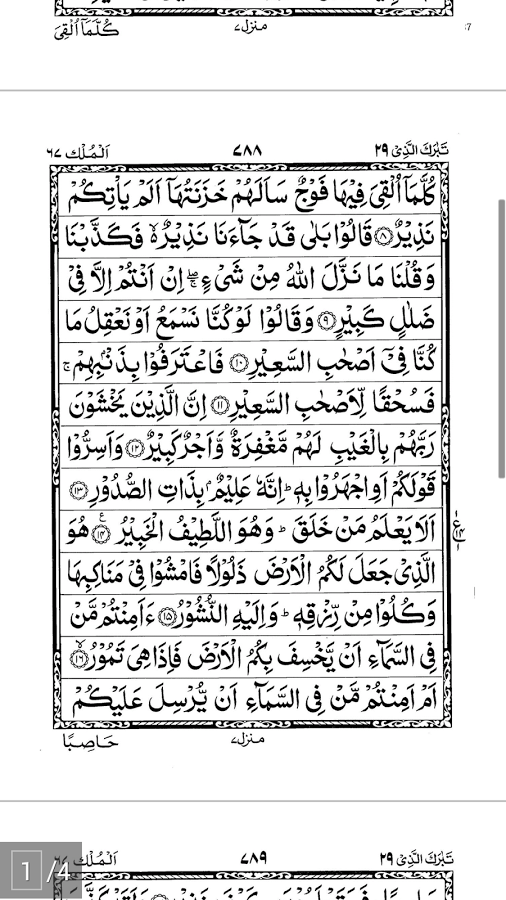 كُلَّمَآ اُلْقِىَ
منزل۷
:7
تَبٰرَكَ الَّذِىْ ۲۹
۷۸۸
اَلْمُلْك ۶۷
كُلَّمَآ اُلْقِىَ فِيْهَا فَوْجٌ سَاَلَهُمْ خَزَنَتُهَآ اَلَمْ يَاْتِكُمْ
نَذِيْرٌ ۝۸ قَالُوْا بَلٰى قَدْ جَآءَنَا نَذِيْرٌ ۙ۬ فَكَذَّبْنَا
وَقُلْنَا مَا نَزَّلَ اللّٰهُ مِنْ شَىْءٍ ۖۚ اِنْ اَنْتُمْ اِلَّا فِىْ
ضَلٰلٍ كَبِيْرٍ ۝۹ وَقَالُوْا لَوْ كُنَّا نَسْمَعُ اَوْ نَعْقِلُ مَا
كُنَّا فِىْٓ اَصْحٰبِ السَّعِيْرِ ۝۱۰ فَاعْتَرَفُوْا بِذَنْۢبِهِمْ ۚ
فَسُحْقًا لِّاَصْحٰبِ السَّعِيْرِ ۝۱۱ اِنَّ الَّذِيْنَ يَخْشَوْنَ
رَبَّهُمْ بِالْغَيْبِ لَهُمْ مَّغْفِرَةٌ وَّاَجْرٌ كَبِيْرٌ ۝۱۲ وَاَسِرُّوْا
قَوْلَكُمْ اَوِ اجْهَرُوْا بِهٖ ؕ اِنَّهٗ عَلِيْمٌۢ بِذَاتِ الصُّدُوْرِ ۝۱۳
اَلَا يَعْلَمُ مَنْ خَلَقَ ؕ وَهُوَ اللَّطِيْفُ الْخَبِيْرُ ۝۱۴ هُوَ
الَّذِىْ جَعَلَ لَكُمُ الْاَرْضَ ذَلُوْلًا فَامْشُوْا فِىْ مَنَاكِبِهَا
وَكُلُوْا مِنْ رِّزْقِهٖ ؕ وَاِلَيْهِ النُّشُوْرُ ۝۱۵ ءَاَمِنْتُمْ مَّنْ
فِى السَّمَآءِ اَنْ يَّخْسِفَ بِكُمُ الْاَرْضَ فَاِذَا هِىَ تَمُوْرُ ۝۱۶
اَمْ اَمِنْتُمْ مَّنْ فِى السَّمَآءِ اَنْ يُّرْسِلَ عَلَيْكُمْ
منزل۷
حَاصِبًا
تَبٰرَكَ الَّذِىْ ۲۹
۷۸۹
اَلْمُلْك ۶۷
1 /4